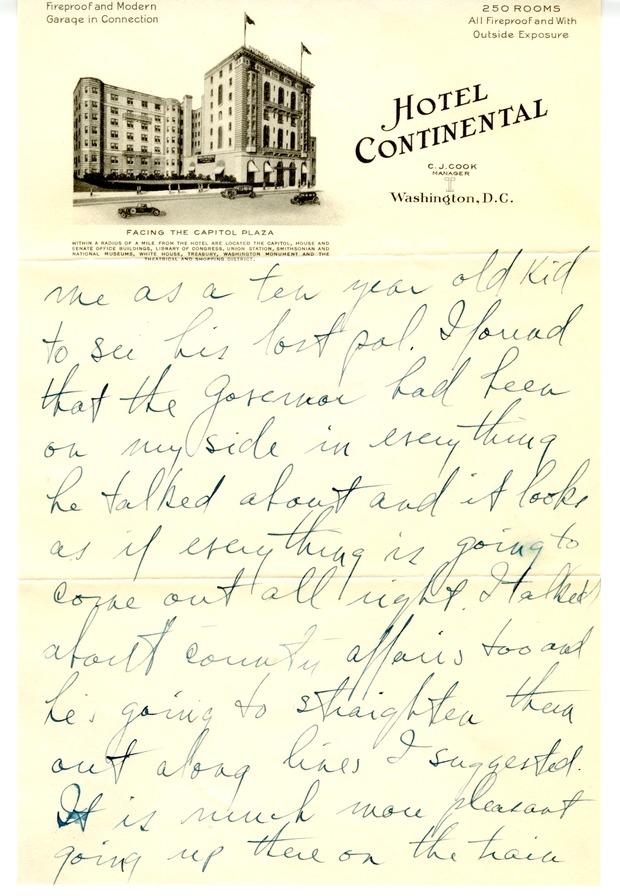 Fireproof and Modern
Garage in Connection
250 ROOMS
All Fireproof and With
Outside Exposure
HOTEL
CONTINENTAL
C. J. COOK
MANAGER
Washington, D.C.
FACING THE CAPITOL PLAZA
WITHIN A RADIUS OF A MILE FROM THE HOTEL ARE LOCATED THE CAPITOL, HOUSE AND
SENATE OFFICE BUILDINGS, LIBRARY OF CONGRESS, UNION STATION, SMITHSONIAN AND
NATIONAL MUSEUMS, WHITE HOUSE, TREASURY, WASHINGTON MONUMENT AND THE
THEATRICAL AND SHOPPING DISTRICT.
me as a ten year old kid
to see his lost pal. I found
that the Governor had been
on my side in everything
he talked about and it looks
as if everything is going to
come out all right. I talked
about county affairs too and
he's going to straighten them
out along lines I suggested.
It is much more pleasant
going up there on the train